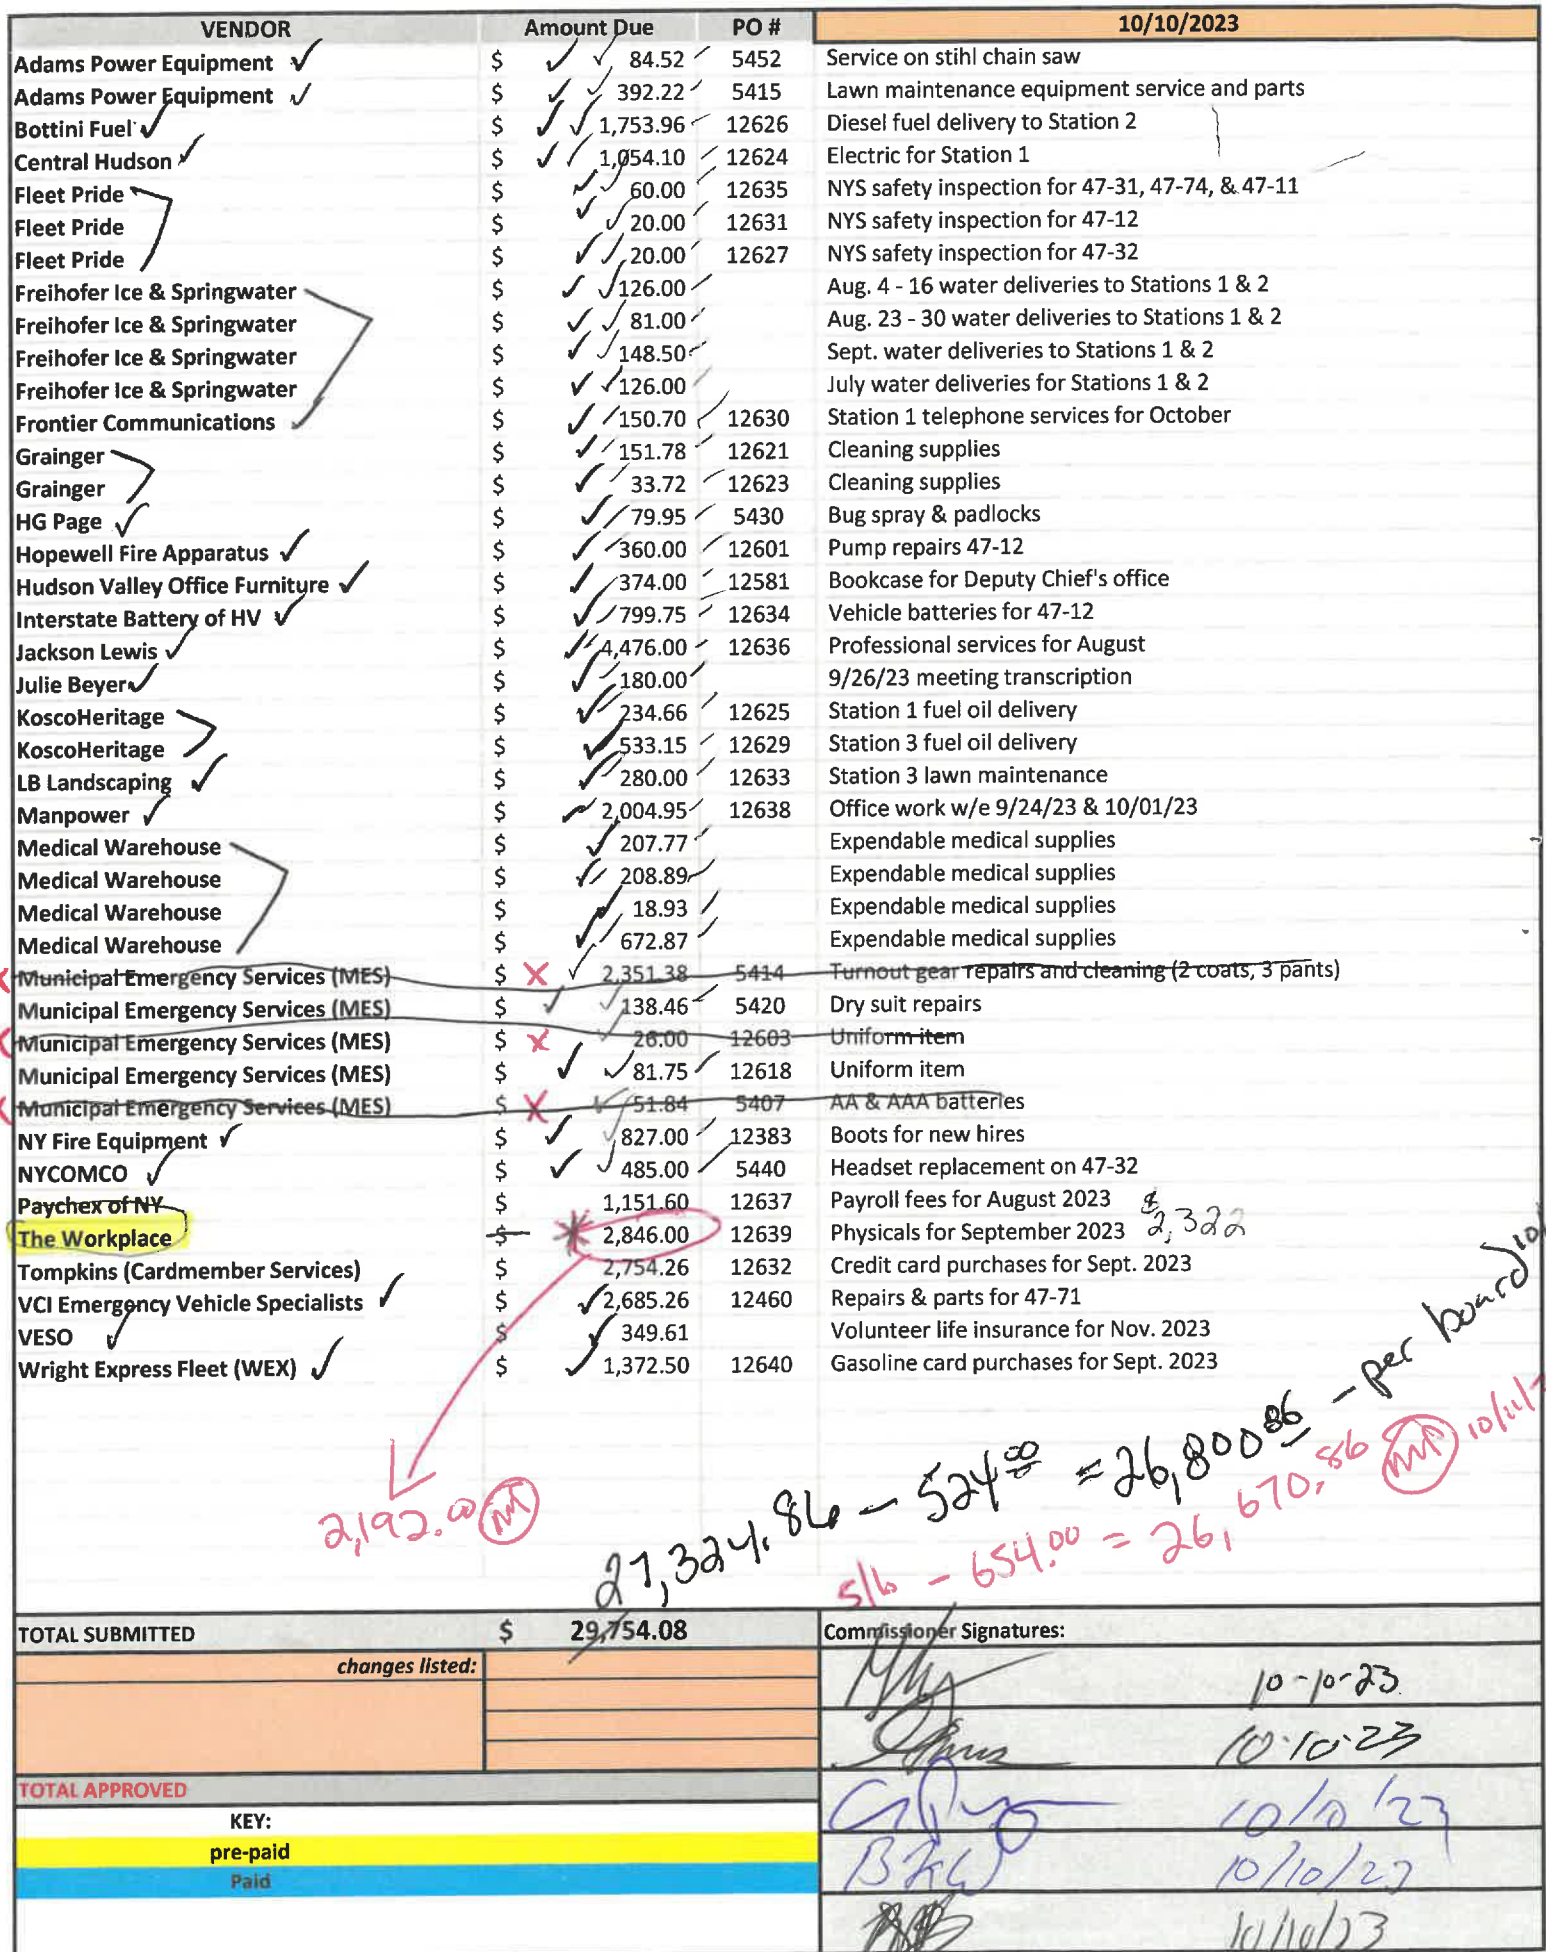 VENDOR Amount Due PO # 10/10/2023
Adams Power Equipment $ 84.52 5452 Service on stihl chain saw
Adams Power Equipment $ 392.22 5415 Lawn maintenance equipment service and parts
Bottini Fuel $ 1,753.96 12626 Diesel fuel delivery to Station 2
Central Hudson $ 1,054.10 12624 Electric for Station 1
Fleet Pride $ 60.00 12635 NYS safety inspection for 47-31, 47-74, & 47-11
Fleet Pride $ 20.00 12631 NYS safety inspection for 47-12
Fleet Pride $ 20.00 12627 NYS safety inspection for 47-32
Freihofer Ice & Springwater $ 126.00 Aug. 4 - 16 water deliveries to Stations 1 & 2
Freihofer Ice & Springwater $ 81.00 Aug. 23 - 30 water deliveries to Stations 1 & 2
Freihofer Ice & Springwater $ 148.50 Sept. water deliveries to Stations 1 & 2
Freihofer Ice & Springwater $ 126.00 July water deliveries for Stations 1 & 2
Frontier Communications $ 150.70 12630 Station 1 telephone services for October
Grainger $ 151.78 12621 Cleaning supplies
Grainger $ 33.72 12623 Cleaning supplies
HG Page $ 79.95 5430 Bug spray & padlocks
Hopewell Fire Apparatus $ 360.00 12601 Pump repairs 47-12
Hudson Valley Office Furniture $ 374.00 12581 Bookcase for Deputy Chief's office
Interstate Battery of HV $ 799.75 12634 Vehicle batteries for 47-12
Jackson Lewis $ 4,476.00 12636 Professional services for August
Julie Beyer $ 180.00 9/26/23 meeting transcription
KoscoHeritage $ 234.66 12625 Station 1 fuel oil delivery
KoscoHeritage $ 533.15 12629 Station 3 fuel oil delivery
LB Landscaping $ 280.00 12633 Station 3 lawn maintenance
Manpower $ 2,004.95 12638 Office work w/e 9/24/23 & 10/01/23
Medical Warehouse $ 207.77 Expendable medical supplies
Medical Warehouse $ 208.89 Expendable medical supplies
Medical Warehouse $ 18.93 Expendable medical supplies
Medical Warehouse $ 672.87 Expendable medical supplies
Municipal Emergency Services (MES) $ 2,351.38 5414 Turnout gear repairs and cleaning (2 coats, 3 pants)
Municipal Emergency Services (MES) $ 138.46 5420 Dry suit repairs
Municipal Emergency Services (MES) $ 26.00 12603 Uniform item
Municipal Emergency Services (MES) $ 81.75 12618 Uniform item
Municipal Emergency Services (MES) $ 51.84 5407 AA & AAA batteries
NY Fire Equipment $ 827.00 12383 Boots for new hires
NYCOMCO $ 485.00 5440 Headset replacement on 47-32
Paychex of NY $ 1,151.60 12637 Payroll fees for August 2023
The Workplace $ 2,846.00 12639 Physicals for September 2023 $2,322
Tompkins (Cardmember Services) $ 2,754.26 12632 Credit card purchases for Sept. 2023
VCI Emergency Vehicle Specialists $ 2,685.26 12460 Repairs & parts for 47-71
VESO $ 349.61 Volunteer life insurance for Nov. 2023
Wright Express Fleet (WEX) $ 1,372.50 12640 Gasoline card purchases for Sept. 2023
2,192.00
27,324.86 - 524.00 = 26,800.86 - per board
s/b - 654.00 = 26,670.86
TOTAL SUBMITTED $ 29,754.08 Commissioner Signatures:
changes listed:
10-10-23
10-10-23
TOTAL APPROVED
10/10/23
KEY:
pre-paid
10/10/23
Paid
10/10/23